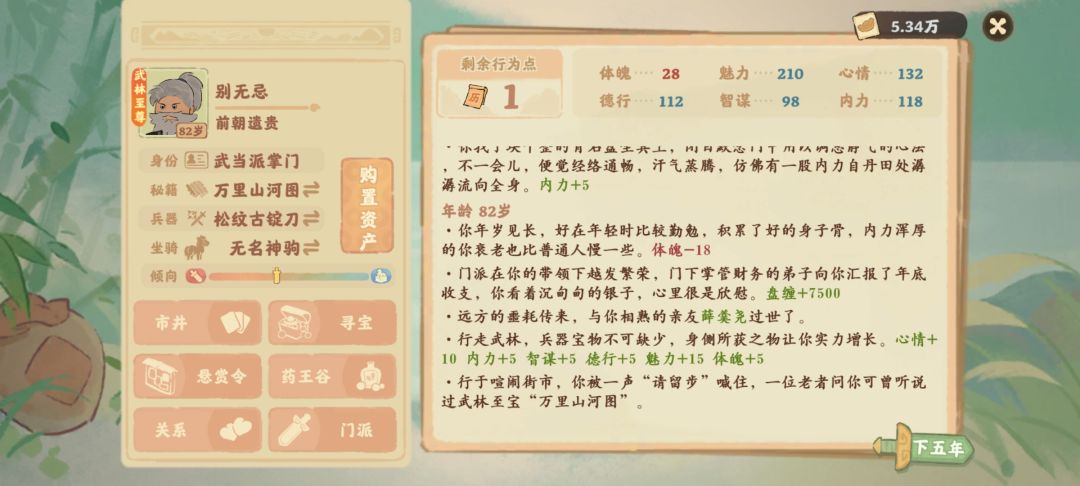 5.34万
武林至尊
82岁
别无忌
前朝遗贵
身份 武当派掌门
秘籍 万里山河图
兵器 松纹古锭刀
坐骑 无名神驹
倾向
购置资产
市井
寻宝
悬赏令
药王谷
关系
门派
剩余行为点
历 1
体魄 28 魅力 210 心情 132
德行 112 智谋 98 内力 118
，不一会儿，便觉经络通畅，汗气蒸腾，仿佛有一股内力自丹田处潺
潺流向全身。内力+5
年龄 82岁
·你年岁见长，好在年轻时比较勤勉，积累了好的身子骨，内力浑厚
的你衰老也比普通人慢一些。体魄-18
·门派在你的带领下越发繁荣，门下掌管财务的弟子向你汇报了年底
收支，你看着沉甸甸的银子，心里很是欣慰。盘缠+7500
·远方的噩耗传来，与你相熟的亲友薛羹尧过世了。
·行走武林，兵器宝物不可缺少，身侧所获之物让你实力增长。心情+
10 内力+5 智谋+5 德行+5 魅力+15 体魄+5
·行于喧闹街市，你被一声“请留步”喊住，一位老者问你可曾听说
过武林至宝“万里山河图”。
下五年